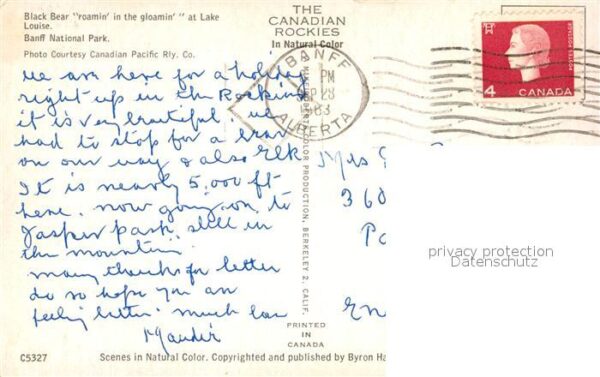 Black Bear "roamin' in the gloamin' " at Lake
Louise.
Banff National Park.
Photo Courtesy Canadian Pacific Rly. Co.
THE
CANADIAN
ROCKIES
In Natural Color
BANFF
PM
ALBERTA
4
CANADA
we are here for a holiday
right up in the Rockies
it is very beautiful. we
had to stop for a bear
on our way & also Elk
It is nearly 5,000 ft
here. now going on to
Jasper park. still in
the mountain.
many thanks for letter
do so hope you are
feeling better. much love
Mrs
360
COLOR PRODUCTION, BERKELEY 2, CALIF.
privacy protection
Datenschutz
PRINTED
IN
CANADA
C5327
Scenes in Natural Color. Copyrighted and published by Byron Ha